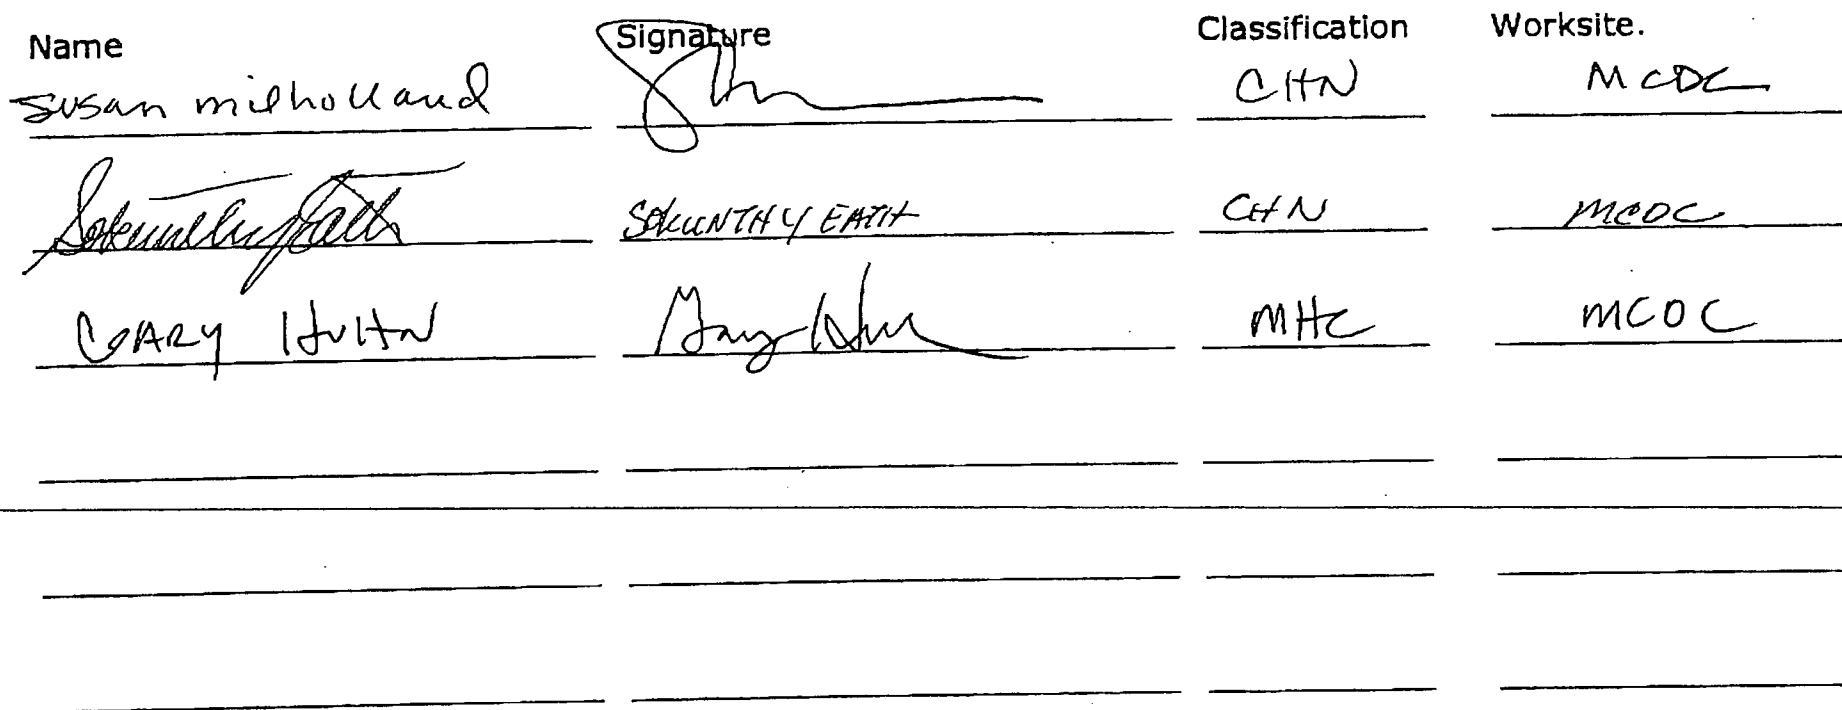 Name Signature Classification Worksite.
susan milholland CHN MCDC
Sokunthy Eath SOKUNTHY EATH CHN MCDC
GARY HUHN Gary Huhn MHC MCDC